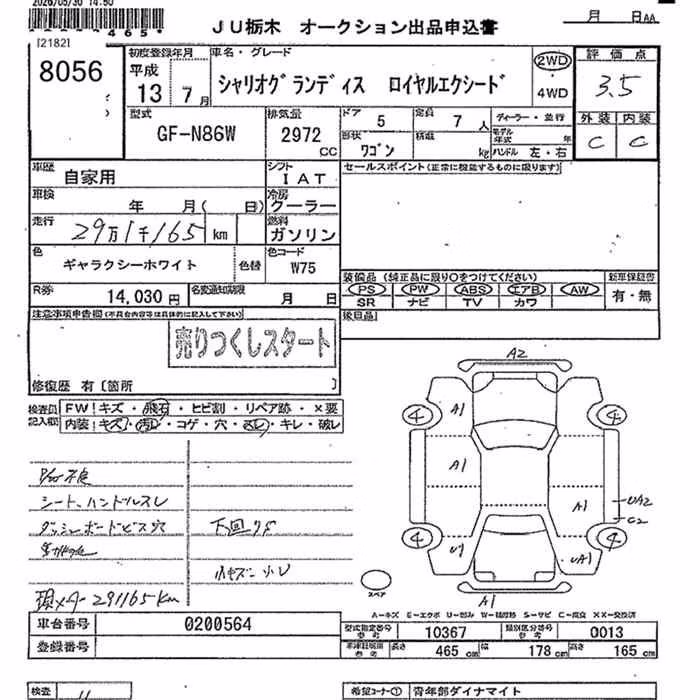 2026/05/30 14:50
465
[2182]
JU栃木 オークション出品申込書
月 日AA
8056
初度登録年月
平成
13 7月
車名・グレード
シャリオグランディス ロイヤルエクシード
2WD
・
4WD
評価点
3.5
型式
GF-N86W
排気量
2972
CC
ドア
5
定員
7人
ディーラー・並行
形状
ワゴン
積載
kg
モデル年式 年
ハンドル 左・右
外装 内装
C C
車歴
自家用
シフト
IAT
セールスポイント(正常に機能するものに限ります)
車検
年 月( 日)
冷房
クーラー
走行
29万1千165 km
燃料
ガソリン
色
ギャラクシーホワイト
色替
色コード
W75
装備品(純正品に限り○をつけてください)
新車保証書
PS PW ABS エアB AW
SR ナビ TV カワ
有・無
R券
14,030円
名変通知期限
月 日
後日品
注意事項申告欄(不具合内容等は具体的に記入して下さい)
売りつくしスタート
修復歴 有〔箇所 〕
検査員
記入欄
FW!キズ・飛石・ヒビ割・リペア跡・×要
内装!キズ・汚レ・コゲ・穴・スレ・キレ・破レ
シート、ハンドルスレ
ダッシュボードビス穴
下回サビ
小キズ 小U
現メーター291165km
A2
4 A1 4
A1 A1 UA2
C2
4 U1 UA1 4
A1
スペア
A-キズ E-エクボ U-凹み W-補修跡 S-サビ C-腐食 XX-交換済
車台番号
0200564
登録番号
型式指定番号
参考
10367
類別区分番号
参考
0013
車検証記載
参考
長さ 465 cm 幅 178 cm 高さ 165 cm
検査
希望コーナー① 青年部ダイナマイト